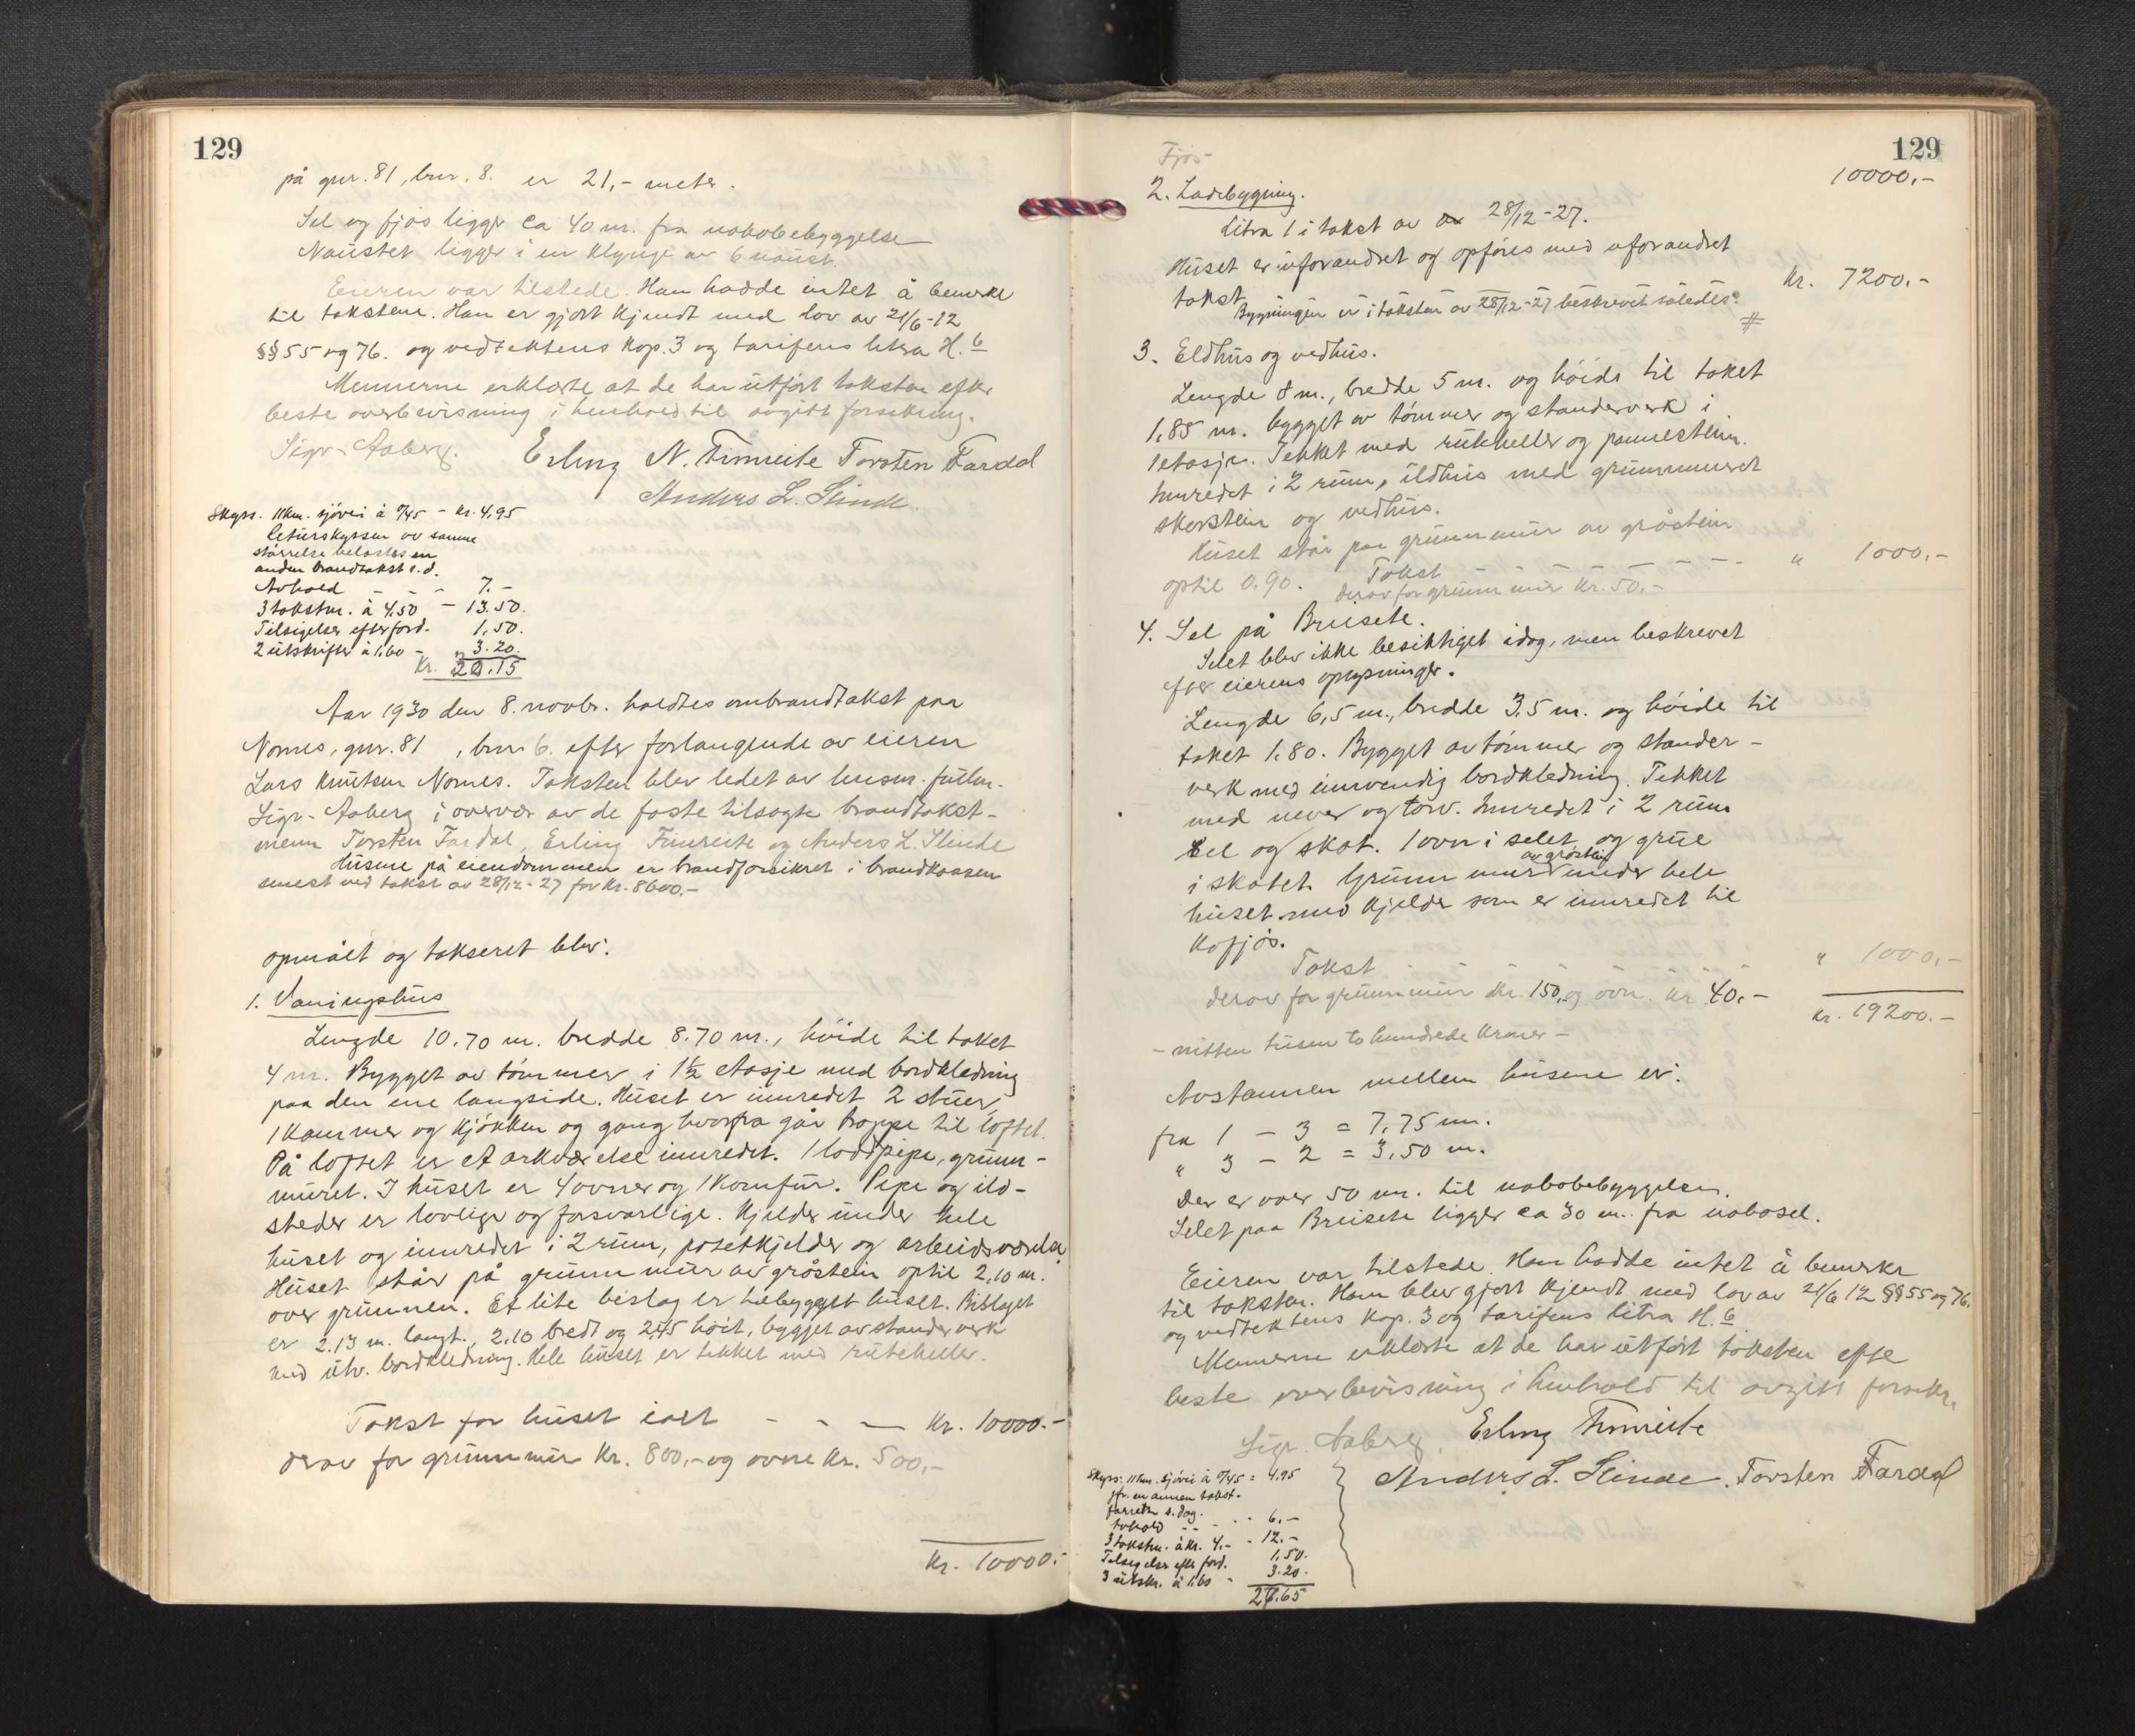 129
på gnr. 81, bnr. 8. er 21,- meter.
Sel og fjøs ligger ca 40 m. fra nabobebyggelse
Naustet ligger i en klynge av 6 naust.
Eieren var tilstede. Han hadde intet å bemerke
til takstene. Han er gjort kjendt med lov av 21/6-12
§§ 55 og 76. og vedtektens kap. 3 og tarifens litra H. 6
Mennerne erklærte at de har utført taksten efter
beste overbevisning i henhold til avgitt forsikring.
Sigv. Aaberg. Erling N. Fimreite Torsten Fardal
Anders L. Slinde.
Skyss. 11 km. sjövei à 0/45 - kr. 4.95
Returskyssen av samme
størrelse belastes en
anden brandtakst s.d.
Avhold - - - 7.-
3 takstm. à 4.50 - 13.50.
Tilsigelser efter ford. 1,50.
2 utskrifter à 1.60 - " 3.20.
Kr. 20.15
Aar 1930 den 8. novbr. holdtes ombrandtakst paa
Nornes, gnr. 81 , bnr 6. efter forlangende av eieren
Lars Knutsen Nornes. Taksten blev ledet av lensm. fullm.
Sigv. Aaberg i overvær av de faste tilsagte brandtakst-
menn Torsten Fardal, Erling Fimreite og Anders L. Slinde
Husene på eiendommen er brandforsikret i brandkassen
senest ved takst av 28/12-27 for kr. 8600.-
opmålt og taksert blev:
1. Vaaningshus
Lengde 10.70 m. bredde 8.70 m., høide til taket
4 m. Bygget av tømmer i 1½ etasje med bordkledning
paa den ene langside. Huset er innredet 2 stuer,
1 kammer og kjøkken og gang hvorfra går trappe til loftet.
På loftet er et arkværelse innredet. 1 loddpipe, grunn-
muret. I huset er 4 ovner og 1 komfur. Pipe og ild-
steder er lovlige og forsvarlige. Kjelder under hele
huset og innredet i 2 rum, potetkjelder og arbeidsværelse
Huset står på grunnmur av gråstein optil 2,10 m.
over grunnen. Et lite bislag er tilbygget huset. Bislaget
er 2.13 m. langt, 2.10 bredt og 2,45 høit, bygget av stander verk
med utv. bordkledning. Hele huset er tekket med rutheller.
Takst for huset ialt - - - kr. 10000.-
derav for grunnmur kr. 800,- og ovne kr. 500,-
Kr. 10000.-
129
10000,-
Fjøs-
2. Ladebygning.
Litra 1 i takst av 28/12-27.
Huset er uforandret og opføres med uforandret
takst kr. 7200,-
Bygningen er i taksten av 28/12-27 beskrevet således: #
3. Eldhus og vedhus.
Lengde 8 m., bredde 5 m. og høide til taket
1,85 m. bygget av tømmer og standerverk i
1 etasje. Tekket med rutheller og pannestein.
Innredet i 2 rum, ildhus med grunnmuret
skorstein og vedhus.
Huset står paa grunnmur av gråstein
optil 0.90. Takst - - - - - " 1000,-
derav for grunnmur kr. 50,-
4. Sel på Breisete.
Selet blev ikke besiktiget idag, men beskrevet
efter eierens oplysninger.
Lengde 6,5 m., bredde 3,5 m. og høide til
taket 1.80. Bygget av tømmer og stander-
verk med innvendig bordkledning. Tekket
med never og torv. Innredet i 2 rum
sel og skot. 1 ovn i selet og grue
i skotet. Grunnmur av gråstein under hele
huset med kjelder som er innredet til
kofjøs.
Takst - - - - - " 1000,-
derav for grunnmur kr. 150,- og ovn kr 40,-
kr. 19200.-
- nitten tusen to hundrede kroner -
Avstannen mellem husene er:
fra 1 - 3 = 7,75 m.
" 3 - 2 = 3,50 m.
Der er over 50 m. til nabobebyggelsen.
Selet paa Breisete ligger ca 30 m. fra nabosel.
Eieren var tilstede. Han hadde intet å bemerke
til taksten. Han blev gjort kjendt med lov av 21/6 12 §§ 55 og 76.
og vedtektens kap. 3 og tarifens litra H. 6
Mennerne erklærte at de har utført taksten efter
beste overbevisning i henhold til avgitt forsikr.
Sigv. Aaberg. Erling Fimreite
Anders L. Slinde. Torsten Fardal
Skyss: 11 km. sjövei à 0/45 = 4.95
jfr. en annen takst.
forretn s. dag.
Avhold - - - 6.-
3 takstm. à kr. 4.- - 12.-
Tilsigelse efter ford. 1,50.
3 utskr. à 1.60 - 3.20.
26.65